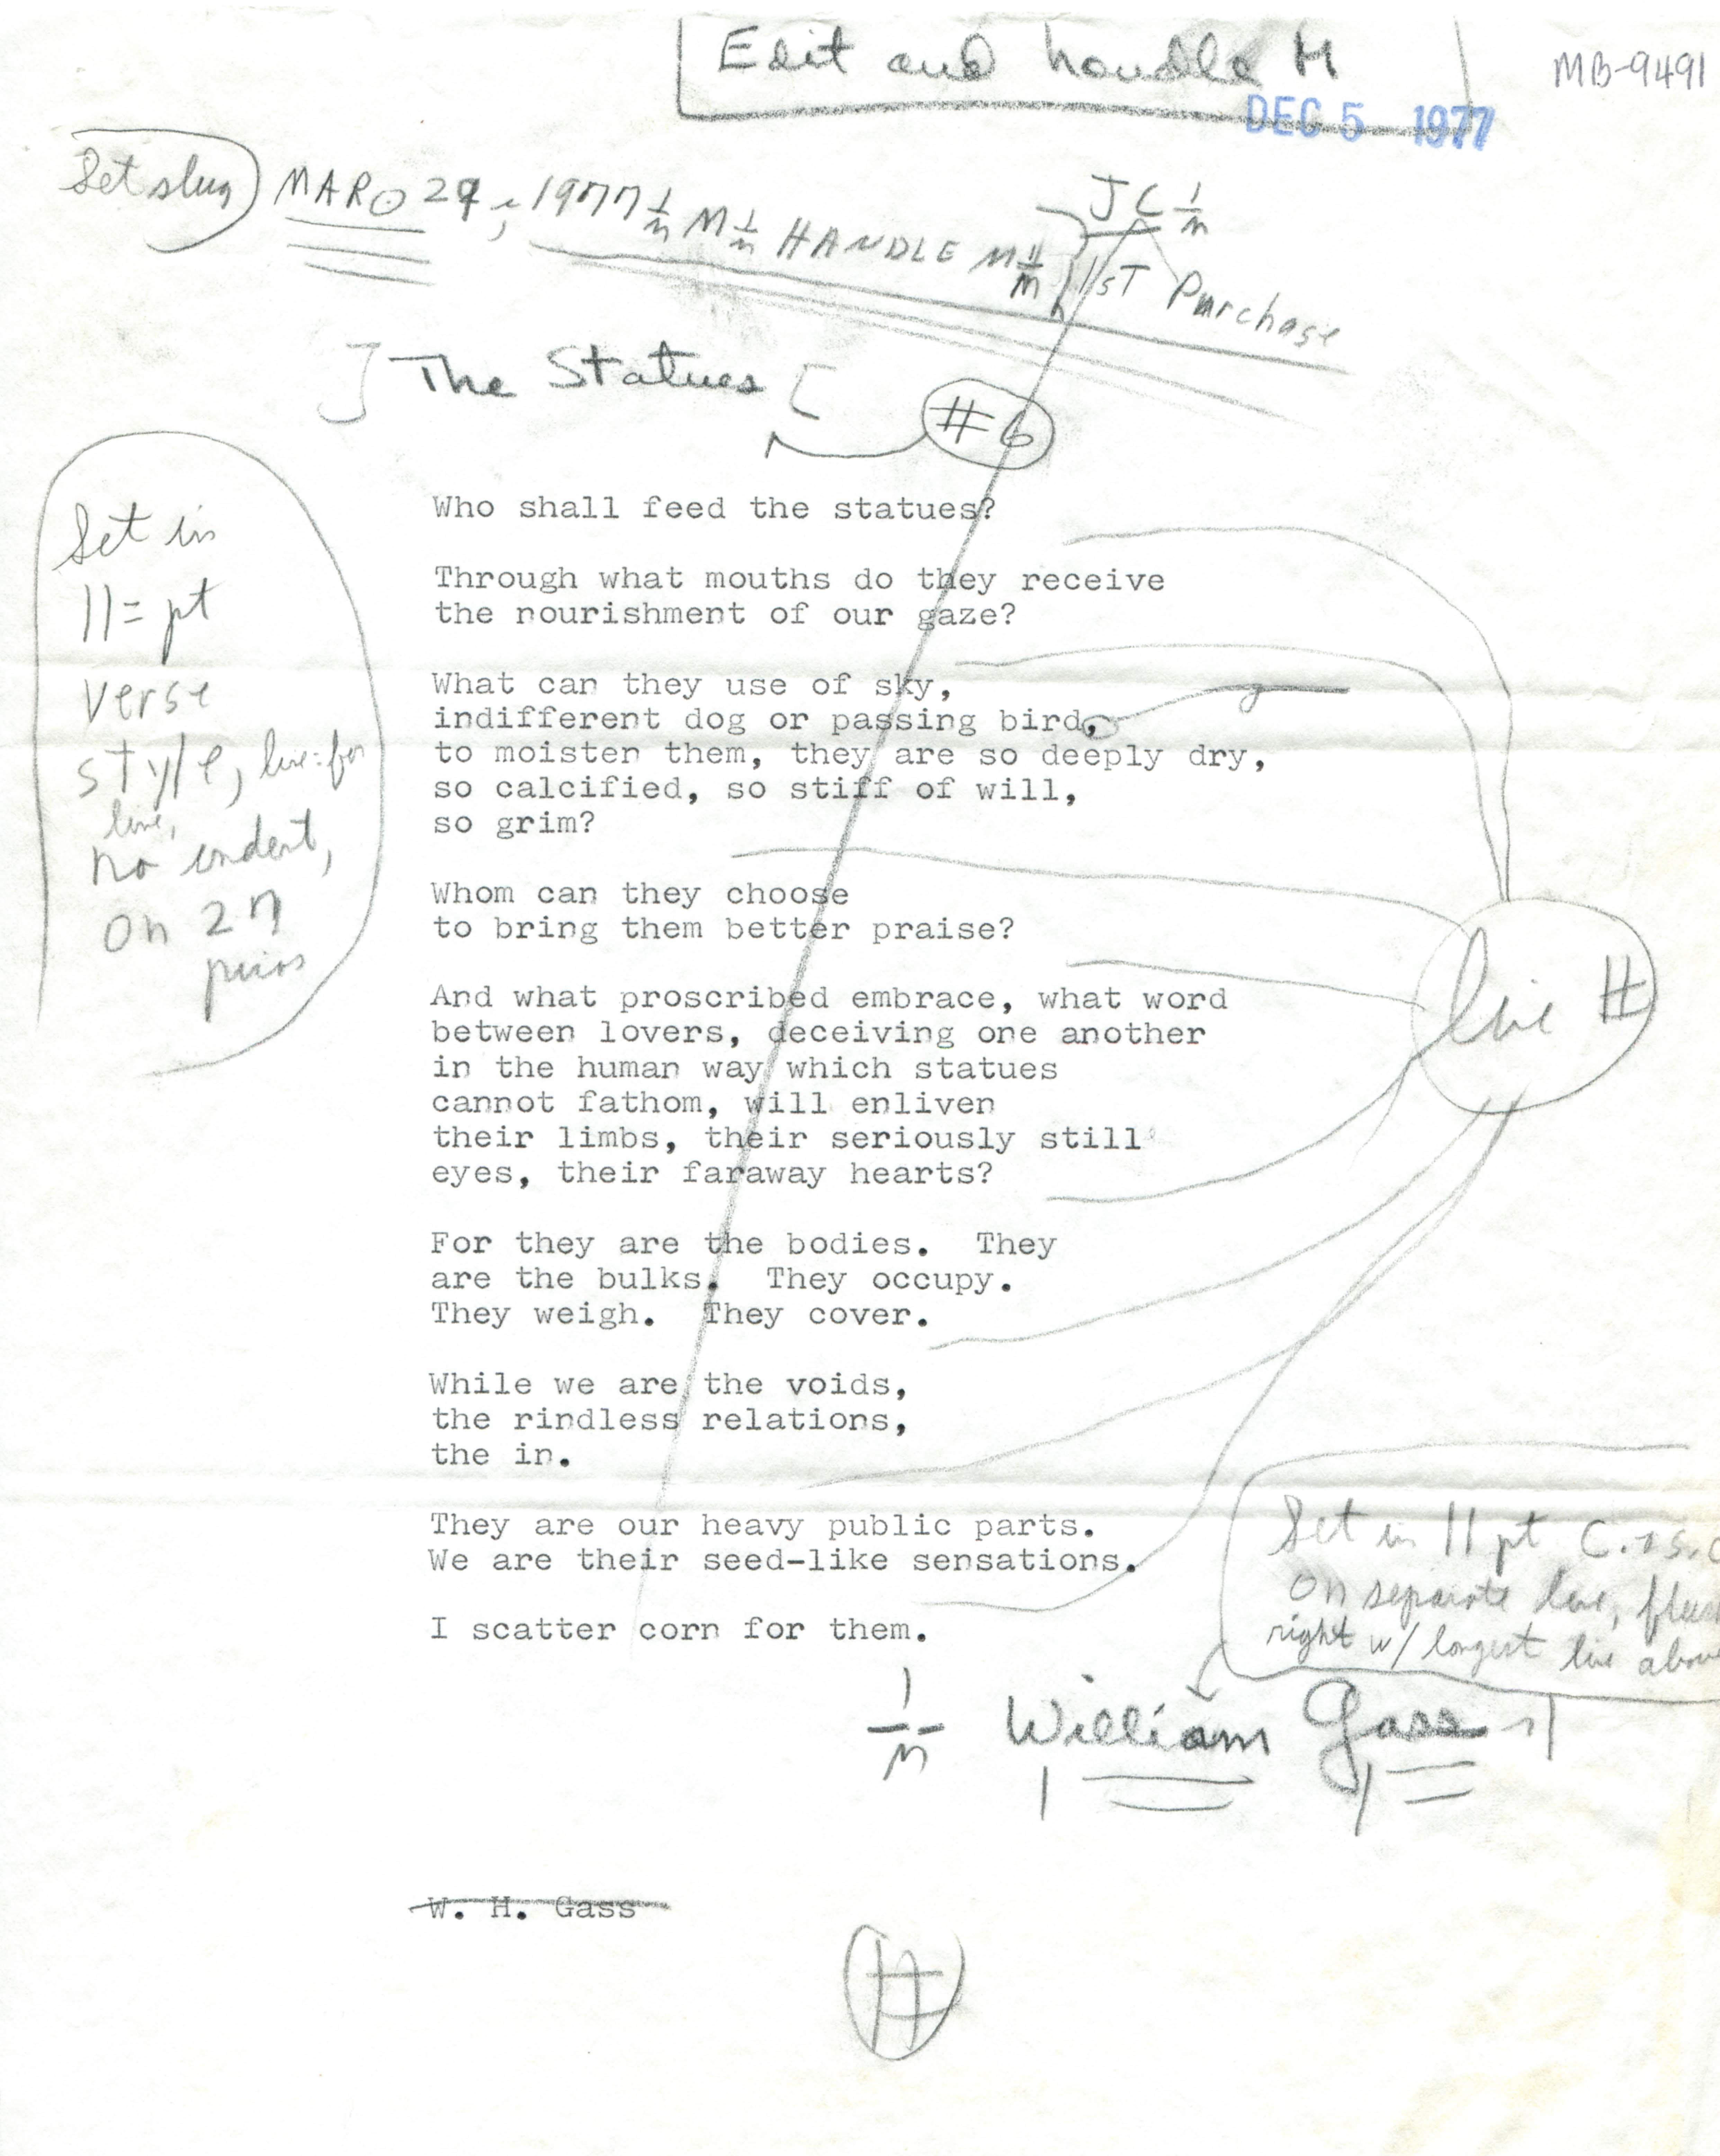 Edit and handle M
MB-9491
DEC 5 1977
Set slug
MAR. 29, 1977 1/m M 1/m HANDLE M 1/m
JC 1/m
1sT Purchase
] The Statues [
#6
Set in
11= pt
verse
style, line for
line,
no indent,
on 27
picas
Who shall feed the statues?
Through what mouths do they receive
the nourishment of our gaze?
What can they use of sky,
indifferent dog or passing bird,
to moisten them, they are so deeply dry,
so calcified, so stiff of will,
so grim?
Whom can they choose
to bring them better praise?
And what proscribed embrace, what word
between lovers, deceiving one another
in the human way which statues
cannot fathom, will enliven
their limbs, their seriously still
eyes, their faraway hearts?
For they are the bodies.  They
are the bulks.  They occupy.
They weigh.  They cover.
While we are the voids,
the rindless relations,
the in.
They are our heavy public parts.
We are their seed-like sensations.
I scatter corn for them.
line #
Set in 11 pt C.+s.c
on separate line, flus
right w/ longest line above
1/m William Gass
W. H. Gass
#